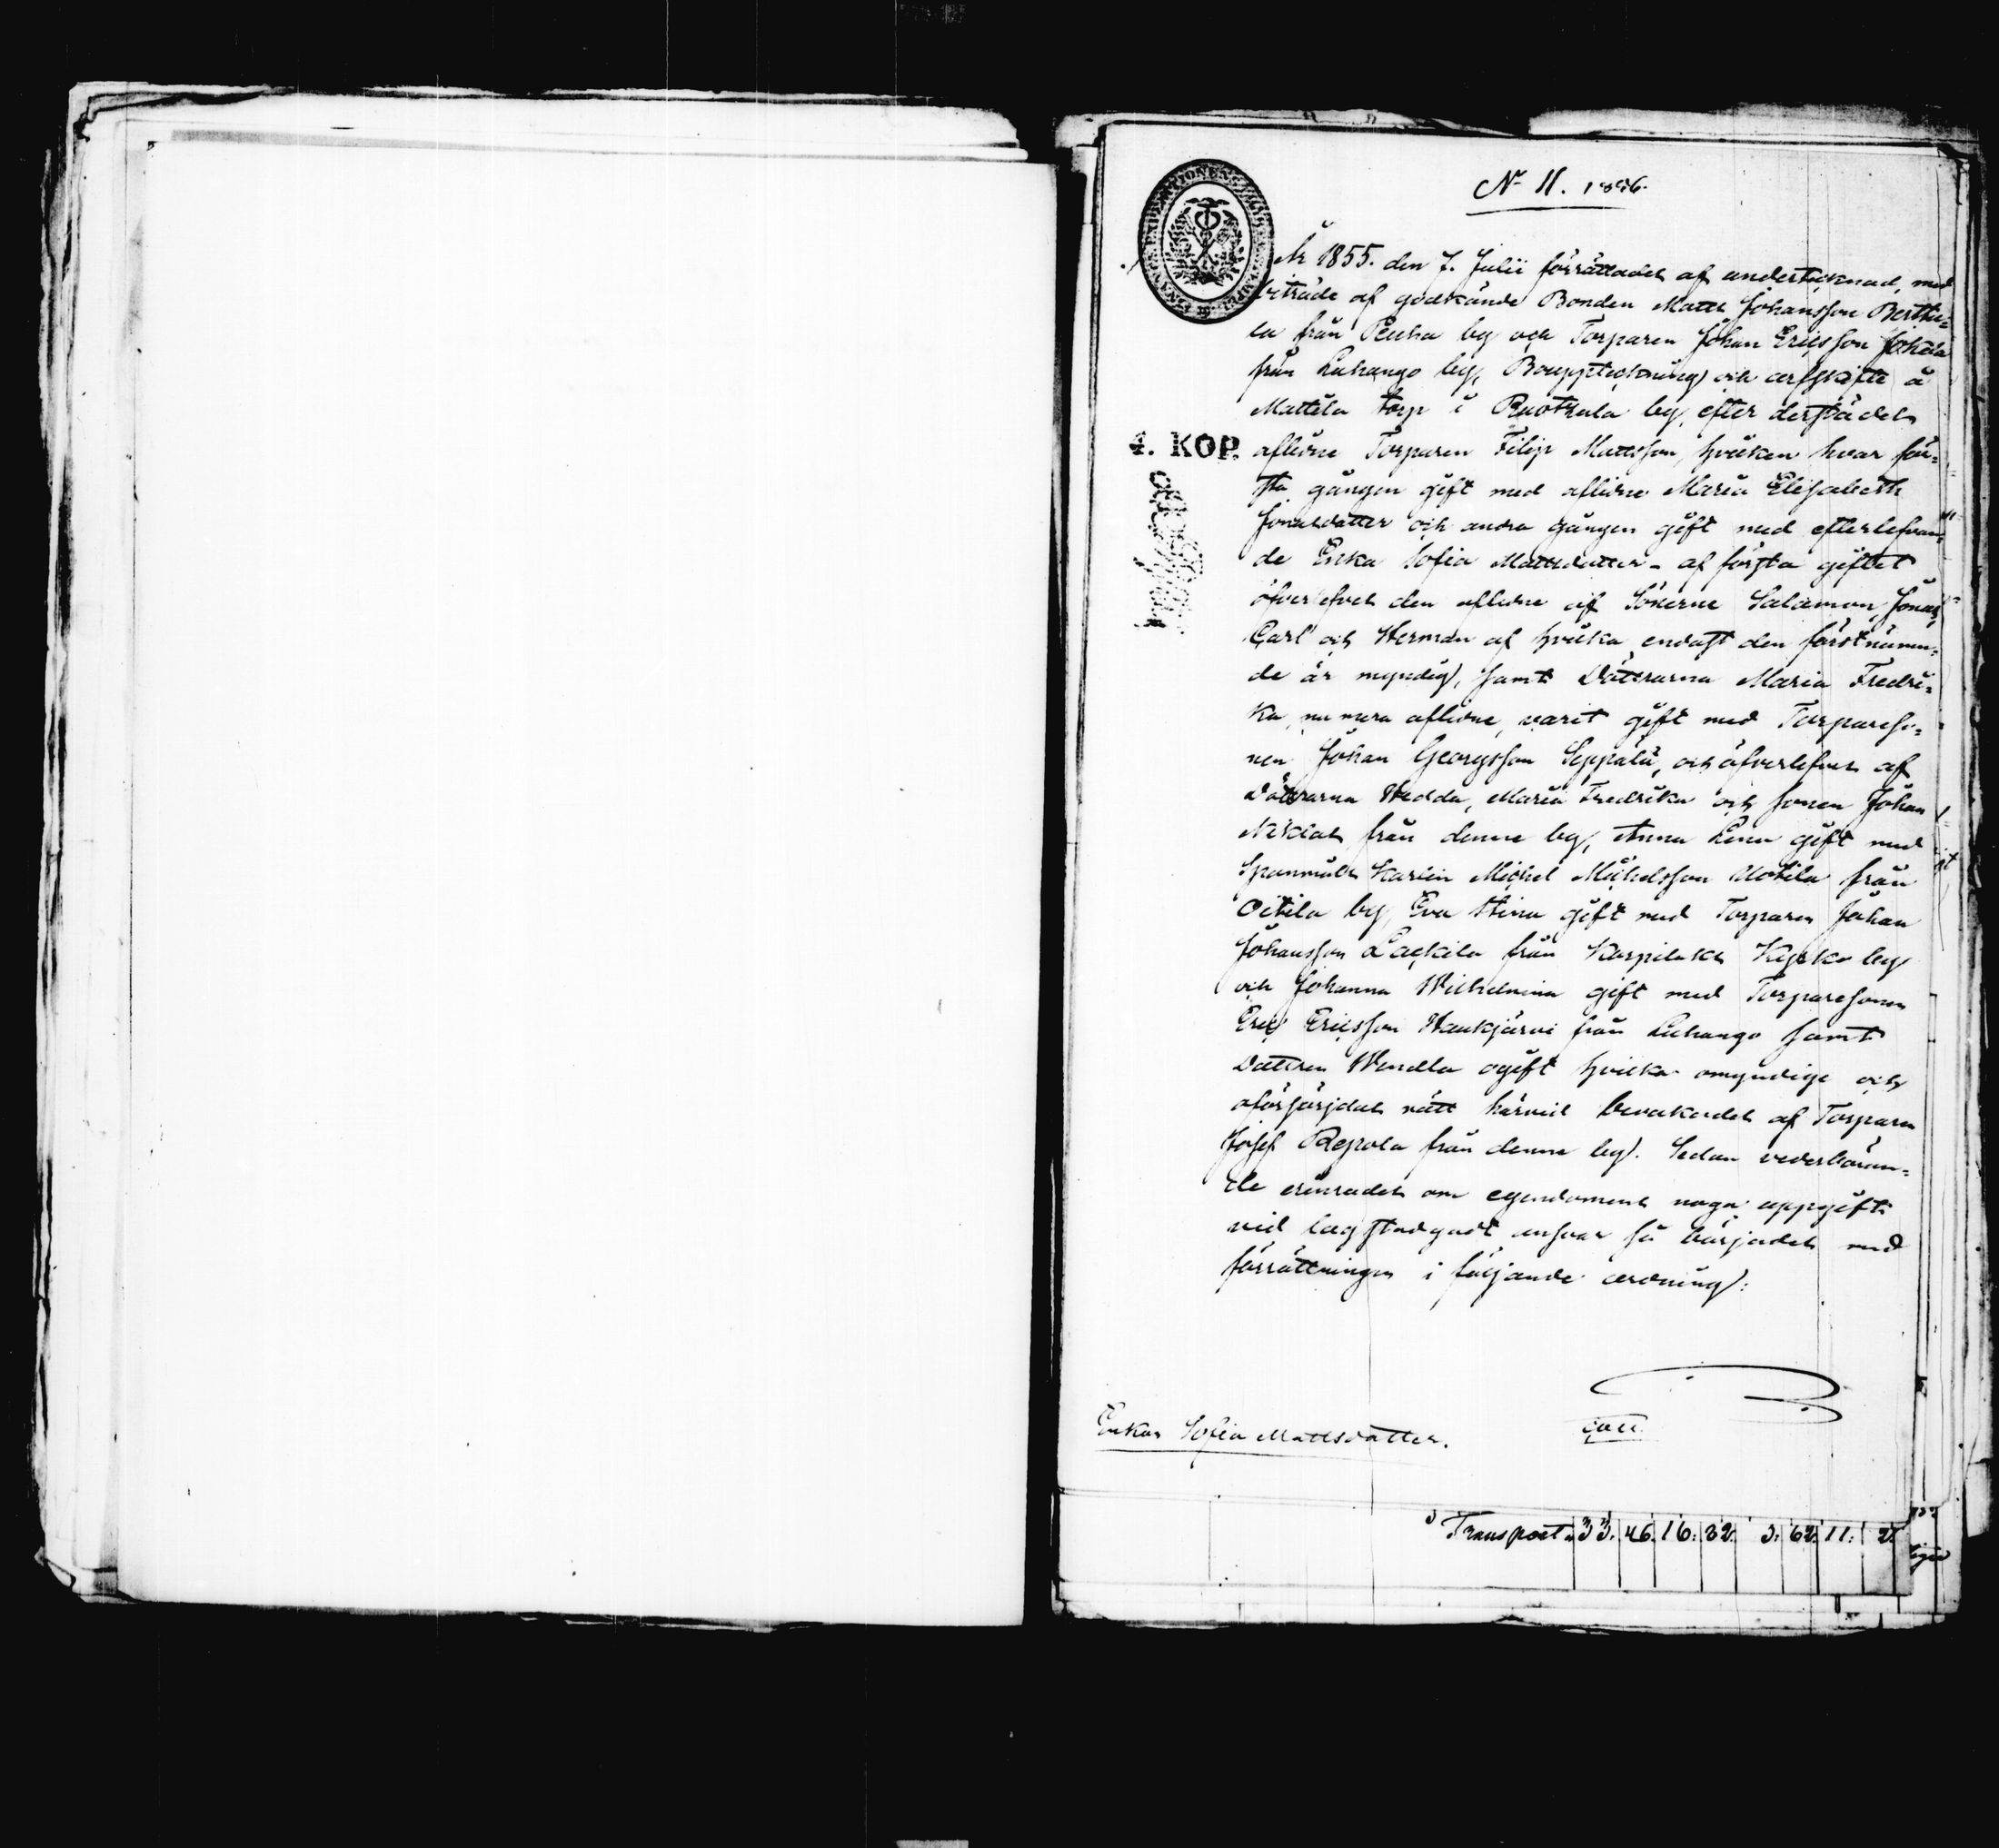 N 11. 1856.
År 1855. den 7. Julii förrättades af undertecknad, med
biträde af godkände Bonden Matts Johansson Berttu=
la från Peuha by och Torparen Johan Ericsson Johela
från Luhango by, Bouppteckning och arfskifte å
Mattila torp i Ruotsula by, efter derstädes
4. KOP.
aflidne Torparen Filip Mattsson, hvilken hvar för=
sta gången gift med aflidne Maria Elisabeth
Jonasdatter och andra gången gift med efterlefvan=
de Enka Sofia Mattsdatter - af första giftet
öfverlefves den aflidne af Sönerne Salamon, Jonas,
Carl och Herman af hvilka endast den förstnämn=
de är myndig, samt Döttrarna Maria Fredri=
ka, nu mera aflidne, varit gift med Torpareso=
nen Johan Georgsson Seppälä, och öfverlefves af
Döttrarna Hedda, Maria Fredrika och sonen Johan
Niklas från denne by, Anna Lena gift med
Spanmåls Karlin Michel Michelsson Uotila från
Oitila by, Eva Stina gift med Torparen Johan
Johansson Lackila från Karpilaks Kyrko by
och Johanna Wilhelmina gift med Torparesonen
Eric Ericsson Haukjärvi från Luhango samt
Dottren Wendla ogift hvilka omyndige och
oförsörjdas rätt härvid bevakades af Torparen
Josef Repola från denne by. Sedan vederböran=
de erinrades om egendomens noga uppgift
vid lagstadgadt ansvar så börjades med
förrättningen i följande ordning:
Enkan Sofia Mattsdatter.
Transport 33. 46. 16: 82. 3: 62. 11: 2